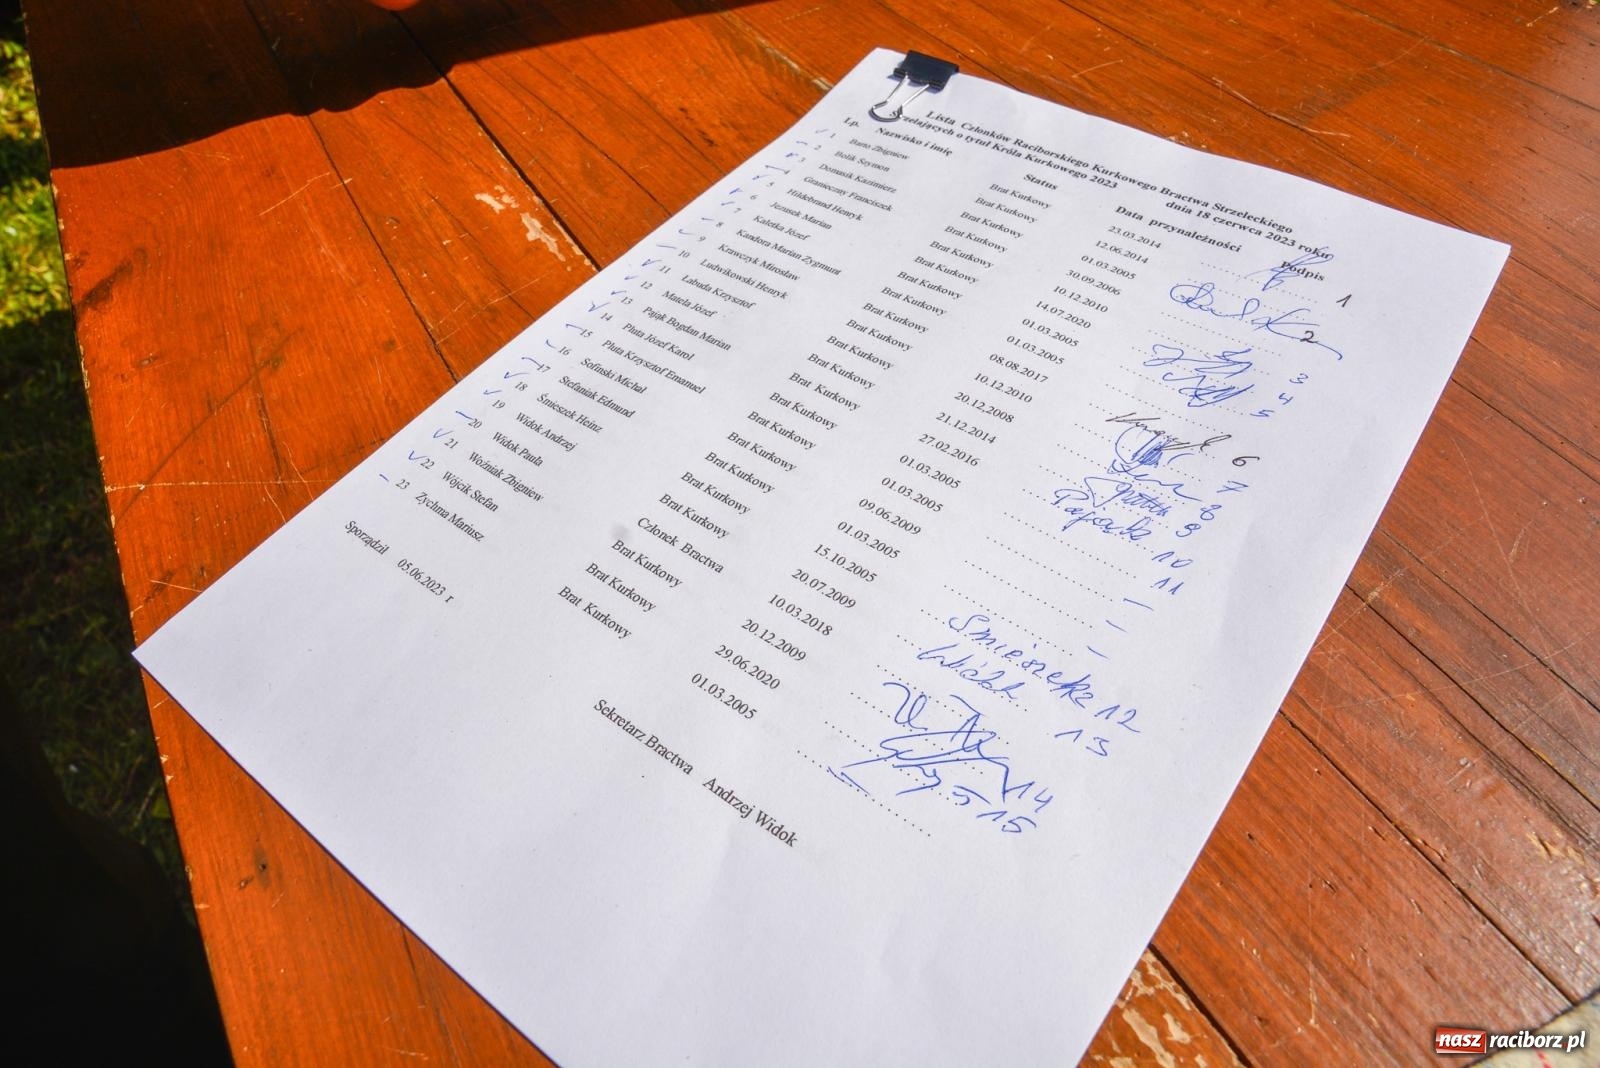 Lista Członków Raciborskiego Kurkowego Bractwa Strzeleckiego
Strzelających o tytuł Króla Kurkowego 2023 dnia 18 czerwca 2023 roku
Lp. Nazwisko i imię Status Data przynależności podpis
1 Barto Zbigniew Brat Kurkowy 23.03.2014 1
2 Bolik Szymon Brat Kurkowy 12.06.2014 2
3 Domasik Kazimierz Brat Kurkowy 01.03.2005
4 Granieczny Franciszek Brat Kurkowy 30.09.2006 3
5 Hildebrand Henryk Brat Kurkowy 10.12.2010 4
6 Jezusek Marian Brat Kurkowy 14.07.2020 5
7 Kaletka Józef Brat Kurkowy 01.03.2005
8 Kandora Marian Zygmunt Brat Kurkowy 01.03.2005
9 Krawczyk Mirosław Brat Kurkowy 08.08.2017 6
10 Ludwikowski Henryk Brat Kurkowy 10.12.2010 7
11 Labuda Krzysztof Brat Kurkowy 20.12.2008 8
12 Matela Józef Brat Kurkowy 21.12.2014 9
13 Pająk Bogdan Marian Brat Kurkowy 27.02.2016 10
14 Pluta Józef Karol Brat Kurkowy 01.03.2005 11
15 Pluta Krzysztof Emanuel Brat Kurkowy 01.03.2005
16 Sofiński Michał Brat Kurkowy 09.06.2009
17 Stefaniak Edmund Brat Kurkowy 01.03.2005
18 Śmieszek Heinz Brat Kurkowy 15.10.2005 Śmieszek 12
19 Widok Andrzej Brat Kurkowy 20.07.2009 13
20 Widok Paula Członek Bractwa 10.03.2018
21 Woźniak Zbigniew Brat Kurkowy 20.12.2009 14
22 Wójcik Stefan Brat Kurkowy 29.06.2020 15
23 Zychma Mariusz Brat Kurkowy 01.03.2005
Sporządził 05.06.2023 r Sekretarz Bractwa Andrzej Widok
nasz raciborz.pl